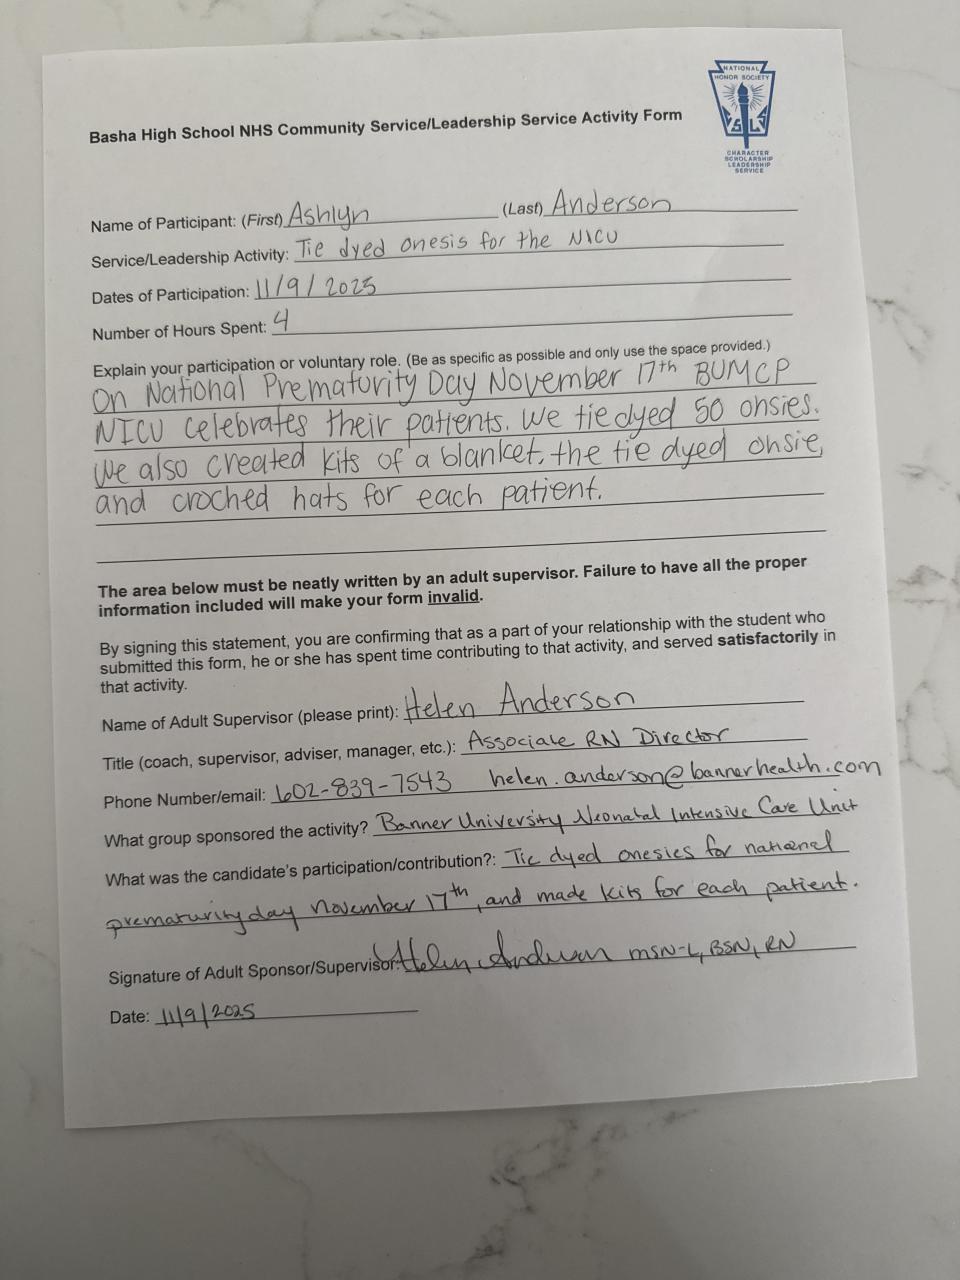 NATIONAL
HONOR SOCIETY
S L S
CHARACTER
SCHOLARSHIP
LEADERSHIP
SERVICE
Basha High School NHS Community Service/Leadership Service Activity Form
Name of Participant: (First) Ashlyn (Last) Anderson
Service/Leadership Activity: Tie dyed onesis for the NICU
Dates of Participation: 11/9/2025
Number of Hours Spent: 4
Explain your participation or voluntary role. (Be as specific as possible and only use the space provided.)
On National Prematurity Day November 17th BUMCP
NICU celebrates their patients. We tie dyed 50 onsies.
We also created kits of a blanket, the tie dyed onsie,
and croched hats for each patient.
The area below must be neatly written by an adult supervisor. Failure to have all the proper
information included will make your form invalid.
By signing this statement, you are confirming that as a part of your relationship with the student who
submitted this form, he or she has spent time contributing to that activity, and served satisfactorily in
that activity.
Name of Adult Supervisor (please print): Helen Anderson
Title (coach, supervisor, adviser, manager, etc.): Associate RN Director
Phone Number/email: 602-839-7543 helen.anderson@bannerhealth.com
What group sponsored the activity? Banner University Neonatal Intensive Care Unit
What was the candidate's participation/contribution?: Tie dyed onesies for national
prematurity day November 17th, and made kits for each patient.
Signature of Adult Sponsor/Supervisor: Helen Anderson MSN-L, BSN, RN
Date: 11/9/2025